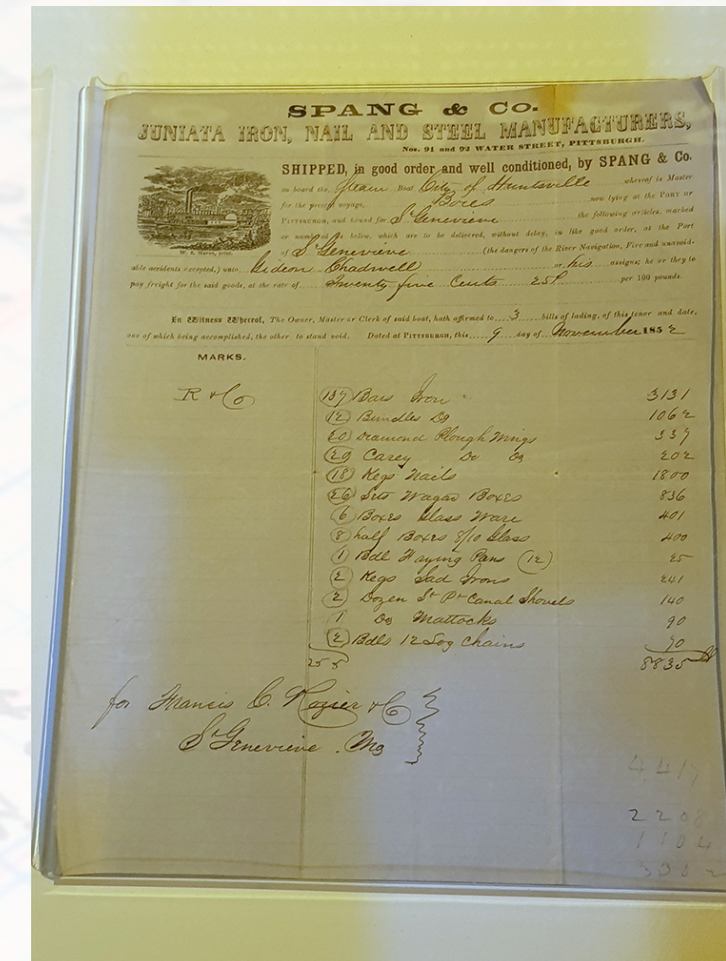 SPANG & CO.
JUNIATA IRON, NAIL AND STEEL MANUFACTURERS,
Nos. 91 and 92 WATER STREET, PITTSBURGH.
SHIPPED, in good order and well conditioned, by SPANG & Co.
on board the Steam Boat City of Huntsville whereof is Master
for the present voyage, Bores now lying at the PORT OF
PITTSBURGH, and bound for St Genevieve the following articles, marked
or numbered as below, which are to be delivered, without delay, in like good order, at the Port
of St Genevieve (the dangers of the River Navigation, Fire and unavoid-
able accidents excepted,) unto Gideon Chadwell or his assigns; he or they to
pay freight for the said goods, at the rate of Twenty five Cents 25 per 100 pounds.
In Witness Whereof, The Owner, Master or Clerk of said boat, hath affirmed to 3 bills of lading, of this tenor and date,
one of which being accomplished, the other to stand void. Dated at PITTSBURGH, this 9 day of November 1852
MARKS.
R & Co
137 Bars Iron 3131
12 Bundles Do 1062
20 Diamond Plough Wings 337
20 Carey Do Do 202
18 Kegs Nails 1800
26 Sets Wagon Boxes 836
6 Boxes Glass Ware 401
8 half Boxes 8/10 Glass 400
1 Bdl Frying Pans (12) 25
2 Kegs Sad Irons 241
2 Dozen St Pt Canal Shovels 140
1 Do Mattocks 90
2 Bdls 12 Log Chains 90
255 8835
for Francis C. Rozier & Co
St Genevieve. Mo
4,417
2208
1104